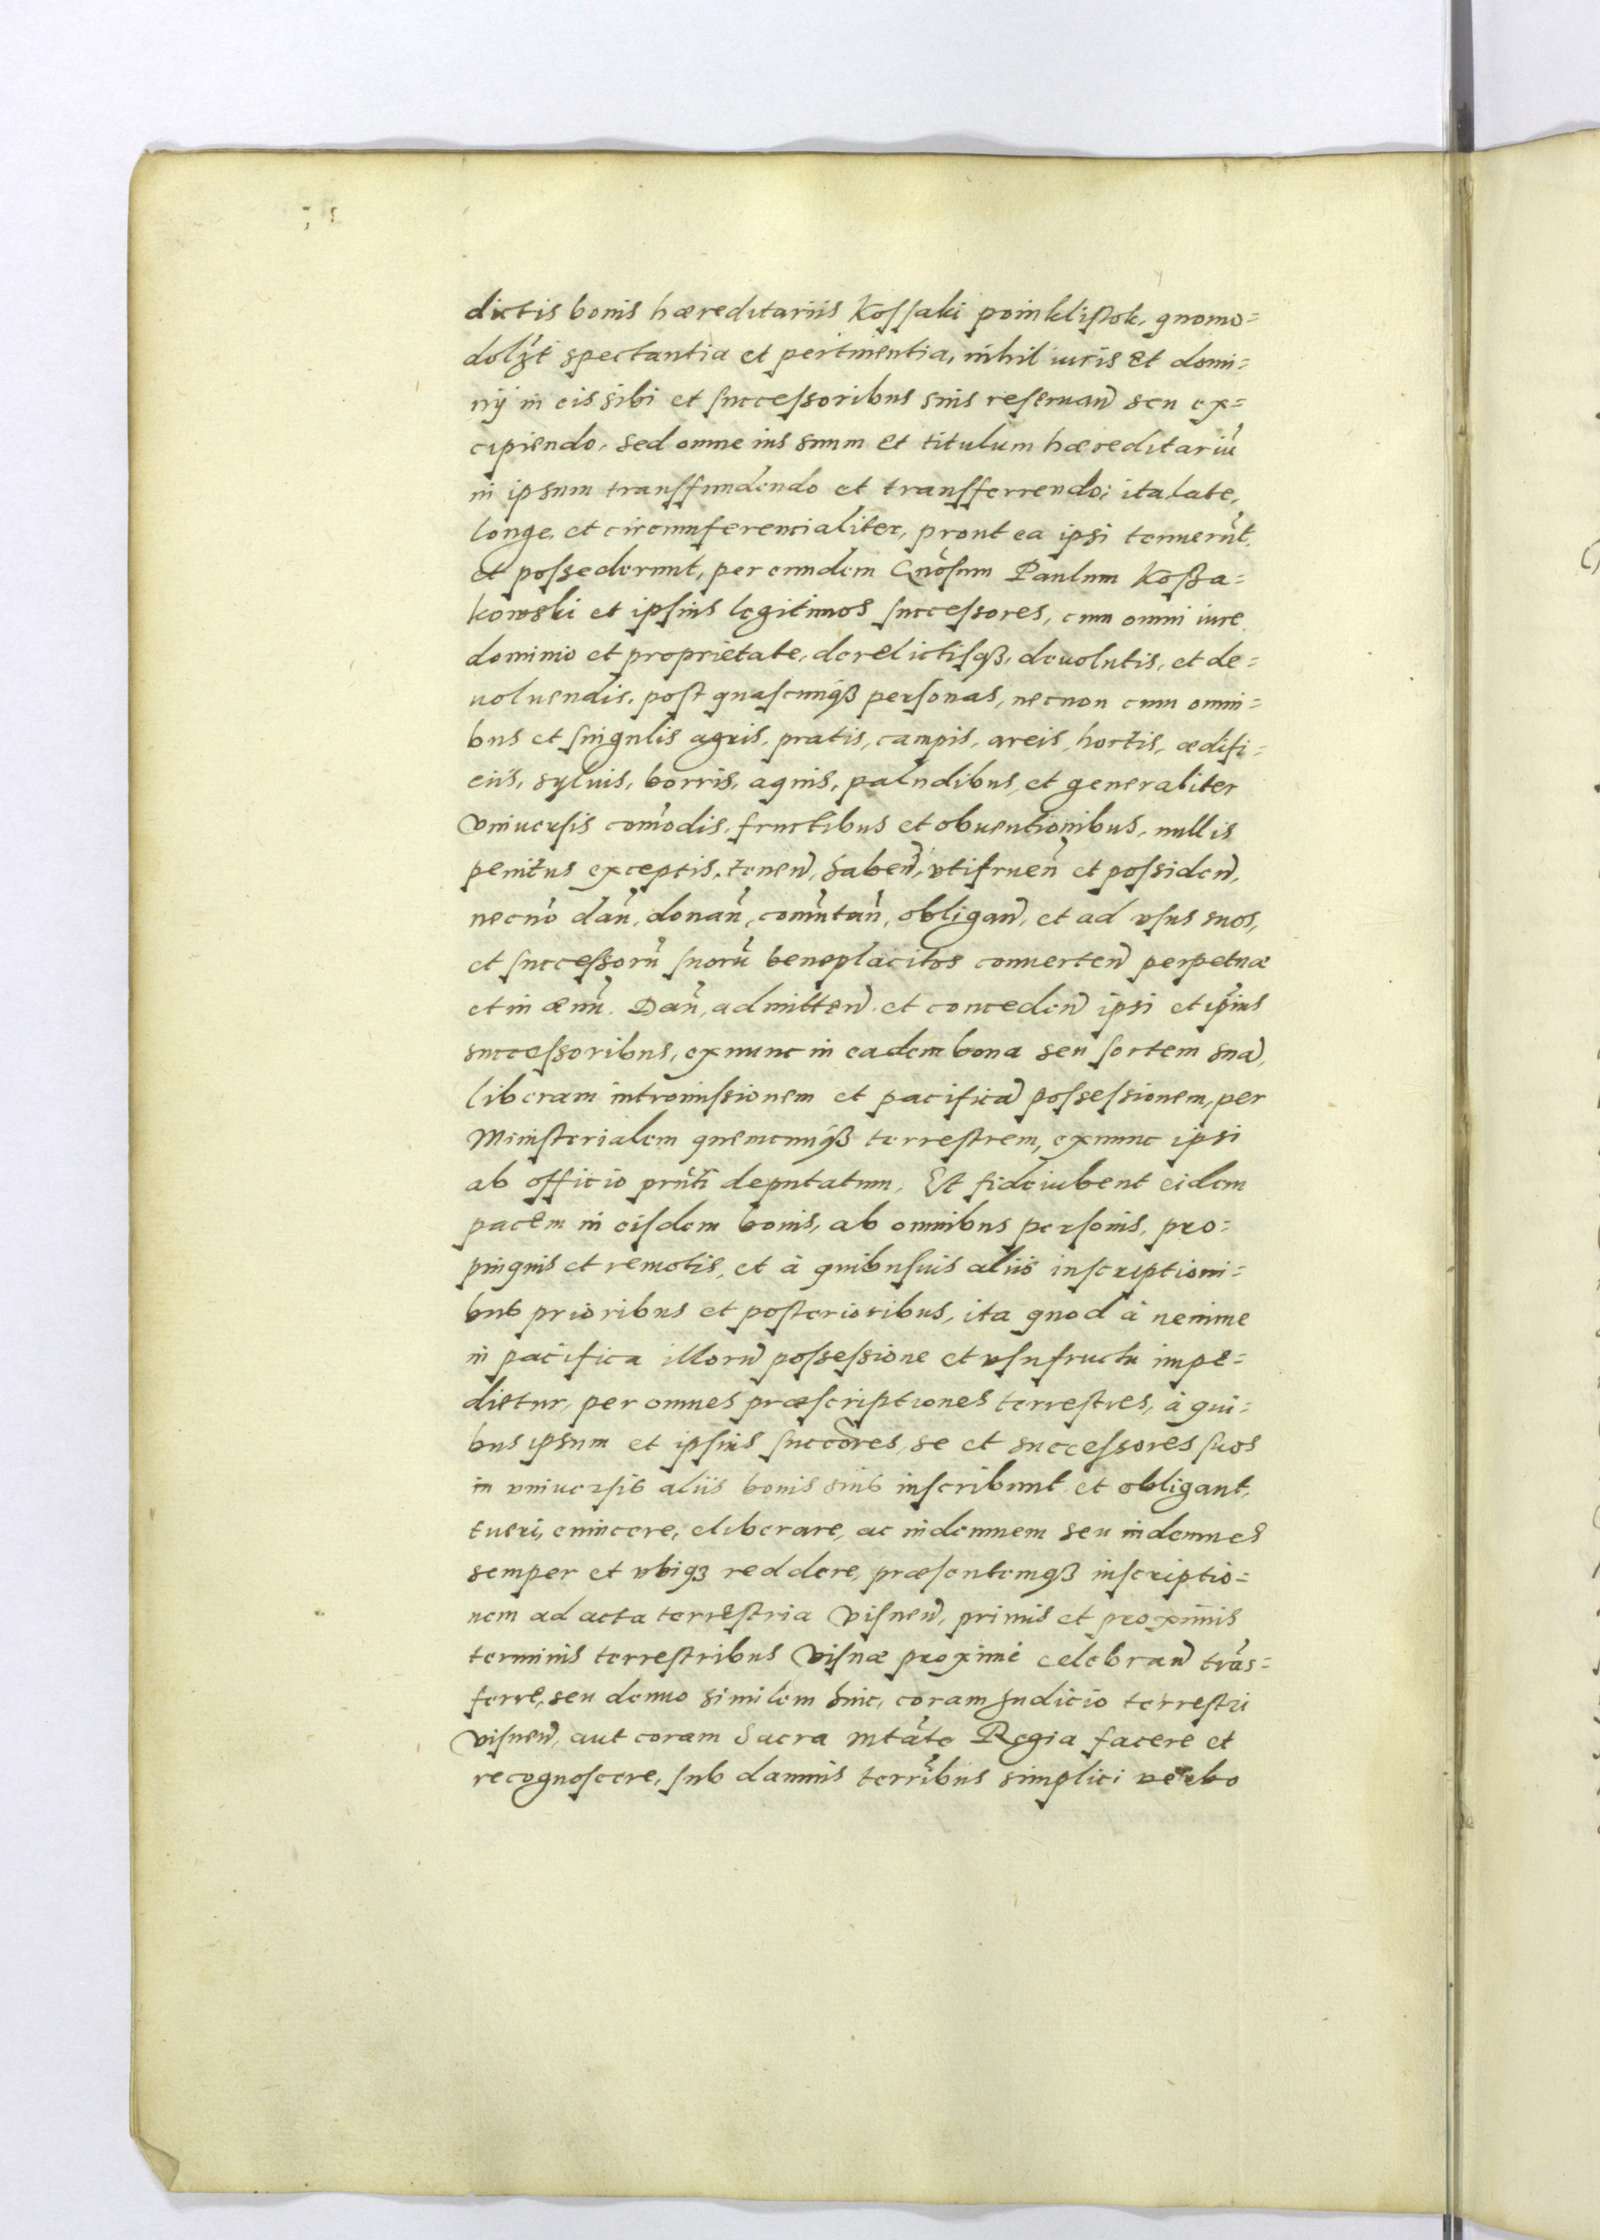 dictis bonis hæreditariis Kossaki poinklistok, quomo=
dolʒt spectantia et pertinentia, nihil iuris et domi=
nij in eis sibi et successoribus suis reseruan̄ seu ex=
cipiendo, sed omne ius suum et titulum hæreditariū
in ipsum transffundendo et transfferrendo; ita late,
longe, et circumferencialiter, prout ea ipsi tenuerūt
et possederunt, per eundem Gnōsum Paulum Kossa=
kowski et ipsius legitimos successores, cum omni iure
dominio et proprietate, derelictisqꝫ, deuolutis, et de=
uoluendis, post quascunqꝫ personas, necnon cum omni=
bus et singulis agris, pratis, campis, areis, hortis, ædifi=
ciis, syluis, borris, aquis, paludibus, et generaliter
vniuersis com̄odis, fructibus et obuentionibus, nullis
penitus exceptis, tenen̄, haben̄, vtifruen̄ et possiden̄,
necnō dan̄, donan̄, com̄utan̄, obligan̄, et ad vsus suos,
et successorū suorū beneplacitos conuerten̄ perpetuæ
et in æuū. Dan̄, admitten̄ et conceden̄ ipsi et ip̄ius
successoribus, exnunc in eadem bona seu sortem suā,
liberam intromissionem et pacificā possessionem, per
Ministerialem quemcunqꝫ terrestrem, exnunc ipsi
ab officio prn̄ti deputatum, Et fideiubent eidem
pacem in eisdem bonis, ab omnibus personis, pro=
pinquis et remotis, et à quibusuis aliis inscriptioni=
bus prioribus et posterioribus, ita quod à nemine
in pacifica illorū possessione et vsufructu impe=
dietur, per omnes præscriptiones terrestres, à qui=
bus ipsum et ipsius succōres, se et successores suos
in vniuersis aliis bonis suis inscribunt et obligant,
tueri, euincere, eliberare, ac indemnem seu indemnes
semper et vbiqꝫ reddere, præsentemqꝫ inscriptio=
nem ad acta terrestria Visnen̄, primis et proximis
terminis terrestribus Visnæ proximè celebran̄ trās=
ferre, seu denuo similem huic, coram Iudicio terrestri
Visnen̄, aut coram Sacra Mtāte Regia facere et
recognoscere, sub damnis terrībus simplici verbo